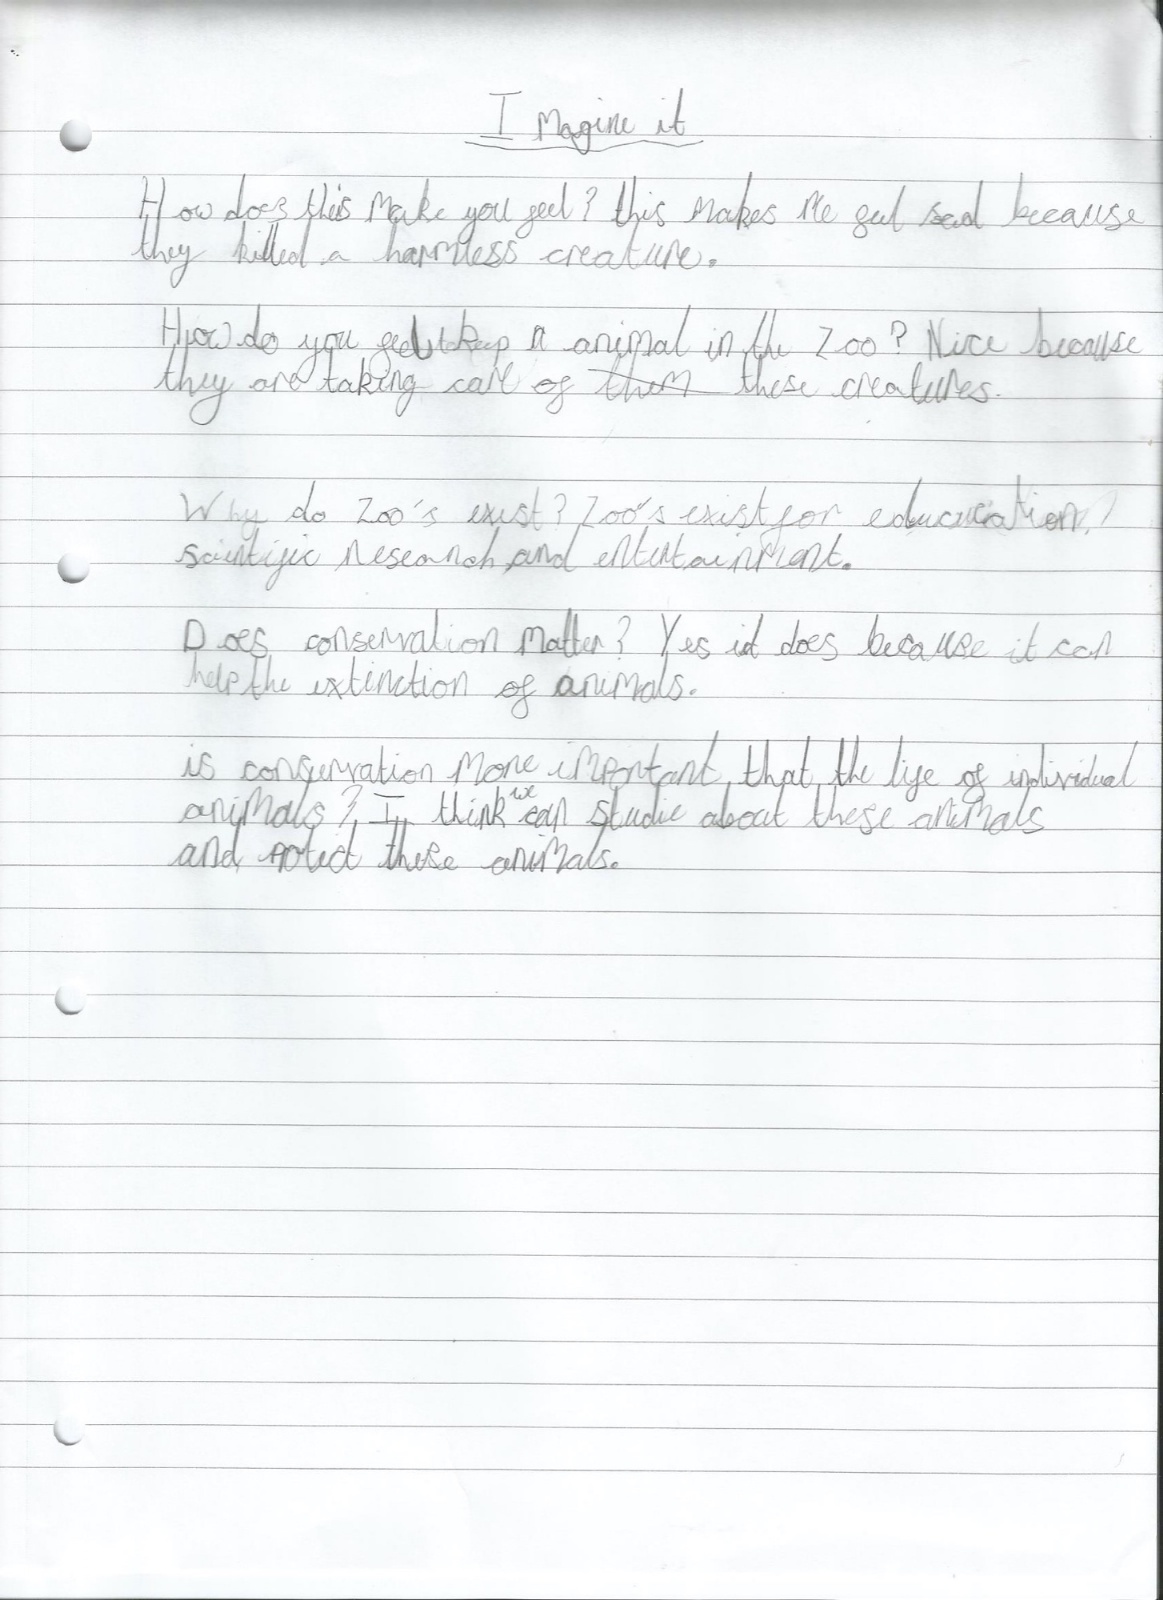 I magine it
How does this make you feel? this makes me feel sad because
they killed a harmless creature.
How do you feel to keep a animal in the zoo? Nice because
they are taking care of them these creatures.
Why do Zoo's exist? Zoo's exist for educucation,
scientific research, and entertainment.
Does conservation matter? Yes it does because it can
help the extinction of animals.
is conservation more important that the life of individual
animals? I think we can studie about these animals
and these animals.